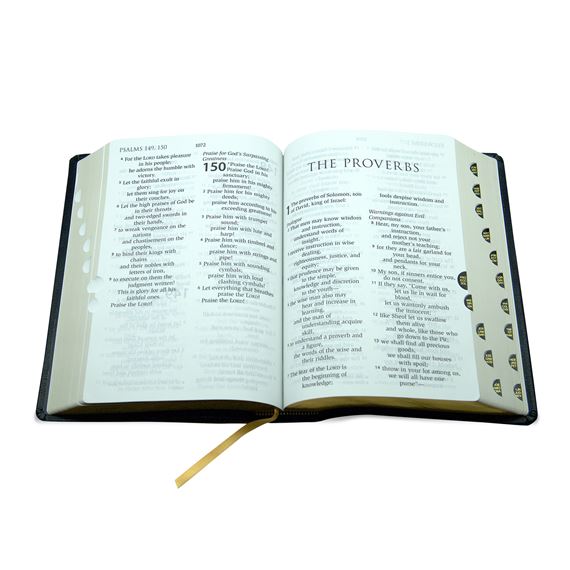 PSALMS 149, 150
1072
4 For the LORD takes pleasure
in his people;
he adorns the humble with
victory.
5 Let the faithful exult in
glory;
let them sing for joy on
their couches.
6 Let the high praises of God be
in their throats
and two-edged swords in
their hands,
7 to wreak vengeance on the
nations
and chastisement on the
peoples,
8 to bind their kings with
chains
and their nobles with
letters of iron,
9 to execute on them the
judgment written!
This is glory for all his
faithful ones.
Praise the LORD!
Praise for God's Surpassing
Greatness
150 Praise the LORD!
Praise God in his
sanctuary;
praise him in his mighty
firmament!
2 Praise him for his mighty
deeds;
praise him according to his
exceeding greatness!
3 Praise him with trumpet
sound;
praise him with lute and
harp!
4 Praise him with timbrel and
dance;
praise him with strings and
pipe!
5 Praise him with sounding
cymbals;
praise him with loud
clashing cymbals!
6 Let everything that breathes
praise the LORD!
Praise the LORD!
THE PROVERBS
1 The proverbs of Solomon, son
of David, king of Israel:
Prologue
2 That men may know wisdom
and instruction,
understand words of
insight,
receive instruction in wise
dealing,
righteousness, justice, and
equity;
that prudence may be given
to the simple,
knowledge and discretion
to the youth—
the wise man also may
hear and increase in
learning,
and the man of
understanding acquire
skill,
to understand a proverb and
a figure,
the words of the wise and
their riddles.
7 The fear of the LORD is
the beginning of
knowledge;
fools despise wisdom and
instruction.
Warnings against Evil
Companions
8 Hear, my son, your father's
instruction,
and reject not your
mother's teaching;
9 for they are a fair garland for
your head,
and pendants for your
neck.
10 My son, if sinners entice you,
do not consent.
11 If they say, "Come with us,
let us lie in wait for
blood,
let us wantonly ambush
the innocent;
12 like Sheol let us swallow
them alive
and whole, like those who
go down to the Pit;
13 we shall find all precious
goods,
we shall fill our houses
with spoil;
14 throw in your lot among us,
we will all have one
purse"—